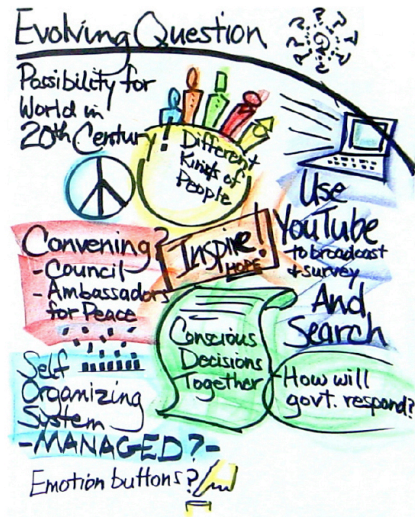 Evolving Question
Possibility for
World in
20th Century!
Different
Kinds of
People
Use
YouTube
to broadcast
+ survey
And
Search
Convening?
- Council
- Ambassadors
for Peace
Inspire!
HOPE
Conscious
Decisions
Together
- How will
govt. respond?
Self
Organizing
System
- MANAGED? -
Emotion buttons?